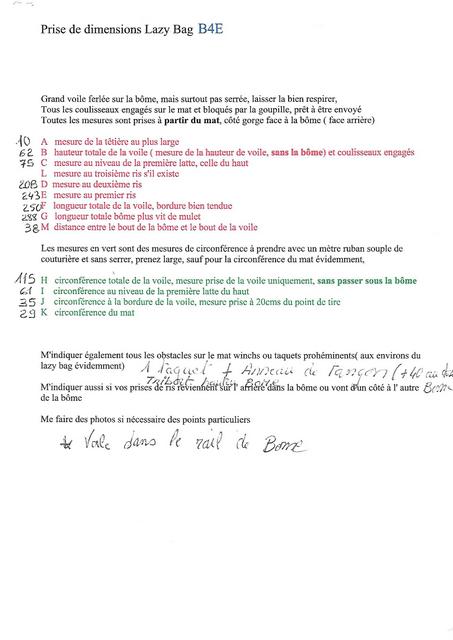 Prise de dimensions Lazy Bag B4E
Grand voile ferlée sur la bôme, mais surtout pas serrée, laisser la bien respirer,
Tous les coulisseaux engagés sur le mat et bloqués par la goupille, prêt à être envoyé
Toutes les mesures sont prises à partir du mat, côté gorge face à la bôme ( face arrière)
10 A mesure de la têtière au plus large
62 B hauteur totale de la voile ( mesure de la hauteur de voile, sans la bôme) et coulisseaux engagés
75 C mesure au niveau de la première latte, celle du haut
L mesure au troisième ris s'il existe
208 D mesure au deuxième ris
243 E mesure au premier ris
250 F longueur totale de la voile, bordure bien tendue
288 G longueur totale bôme plus vit de mulet
38 M distance entre le bout de la bôme et le bout de la voile
Les mesures en vert sont des mesures de circonférence à prendre avec un mètre ruban souple de
couturière et sans serrer, prenez large, sauf pour la circonférence du mat évidemment,
115 H circonférence totale de la voile, mesure prise de la voile uniquement, sans passer sous la bôme
61 I circonférence au niveau de la première latte du haut
35 J circonférence à la bordure de la voile, mesure prise à 20cms du point de tire
29 K circonférence du mat
M'indiquer également tous les obstacles sur le mat winchs ou taquets prohéminents( aux environs du
lazy bag évidemment) 1 Taquet + Anneau de Tangon (+40 au
M'indiquer aussi si vos prises de ris reviennent sur l' arrière dans la bôme ou vont d'un côté à l' autre Bome
de la bôme
Me faire des photos si nécessaire des points particuliers
Voile dans le rail de Bome